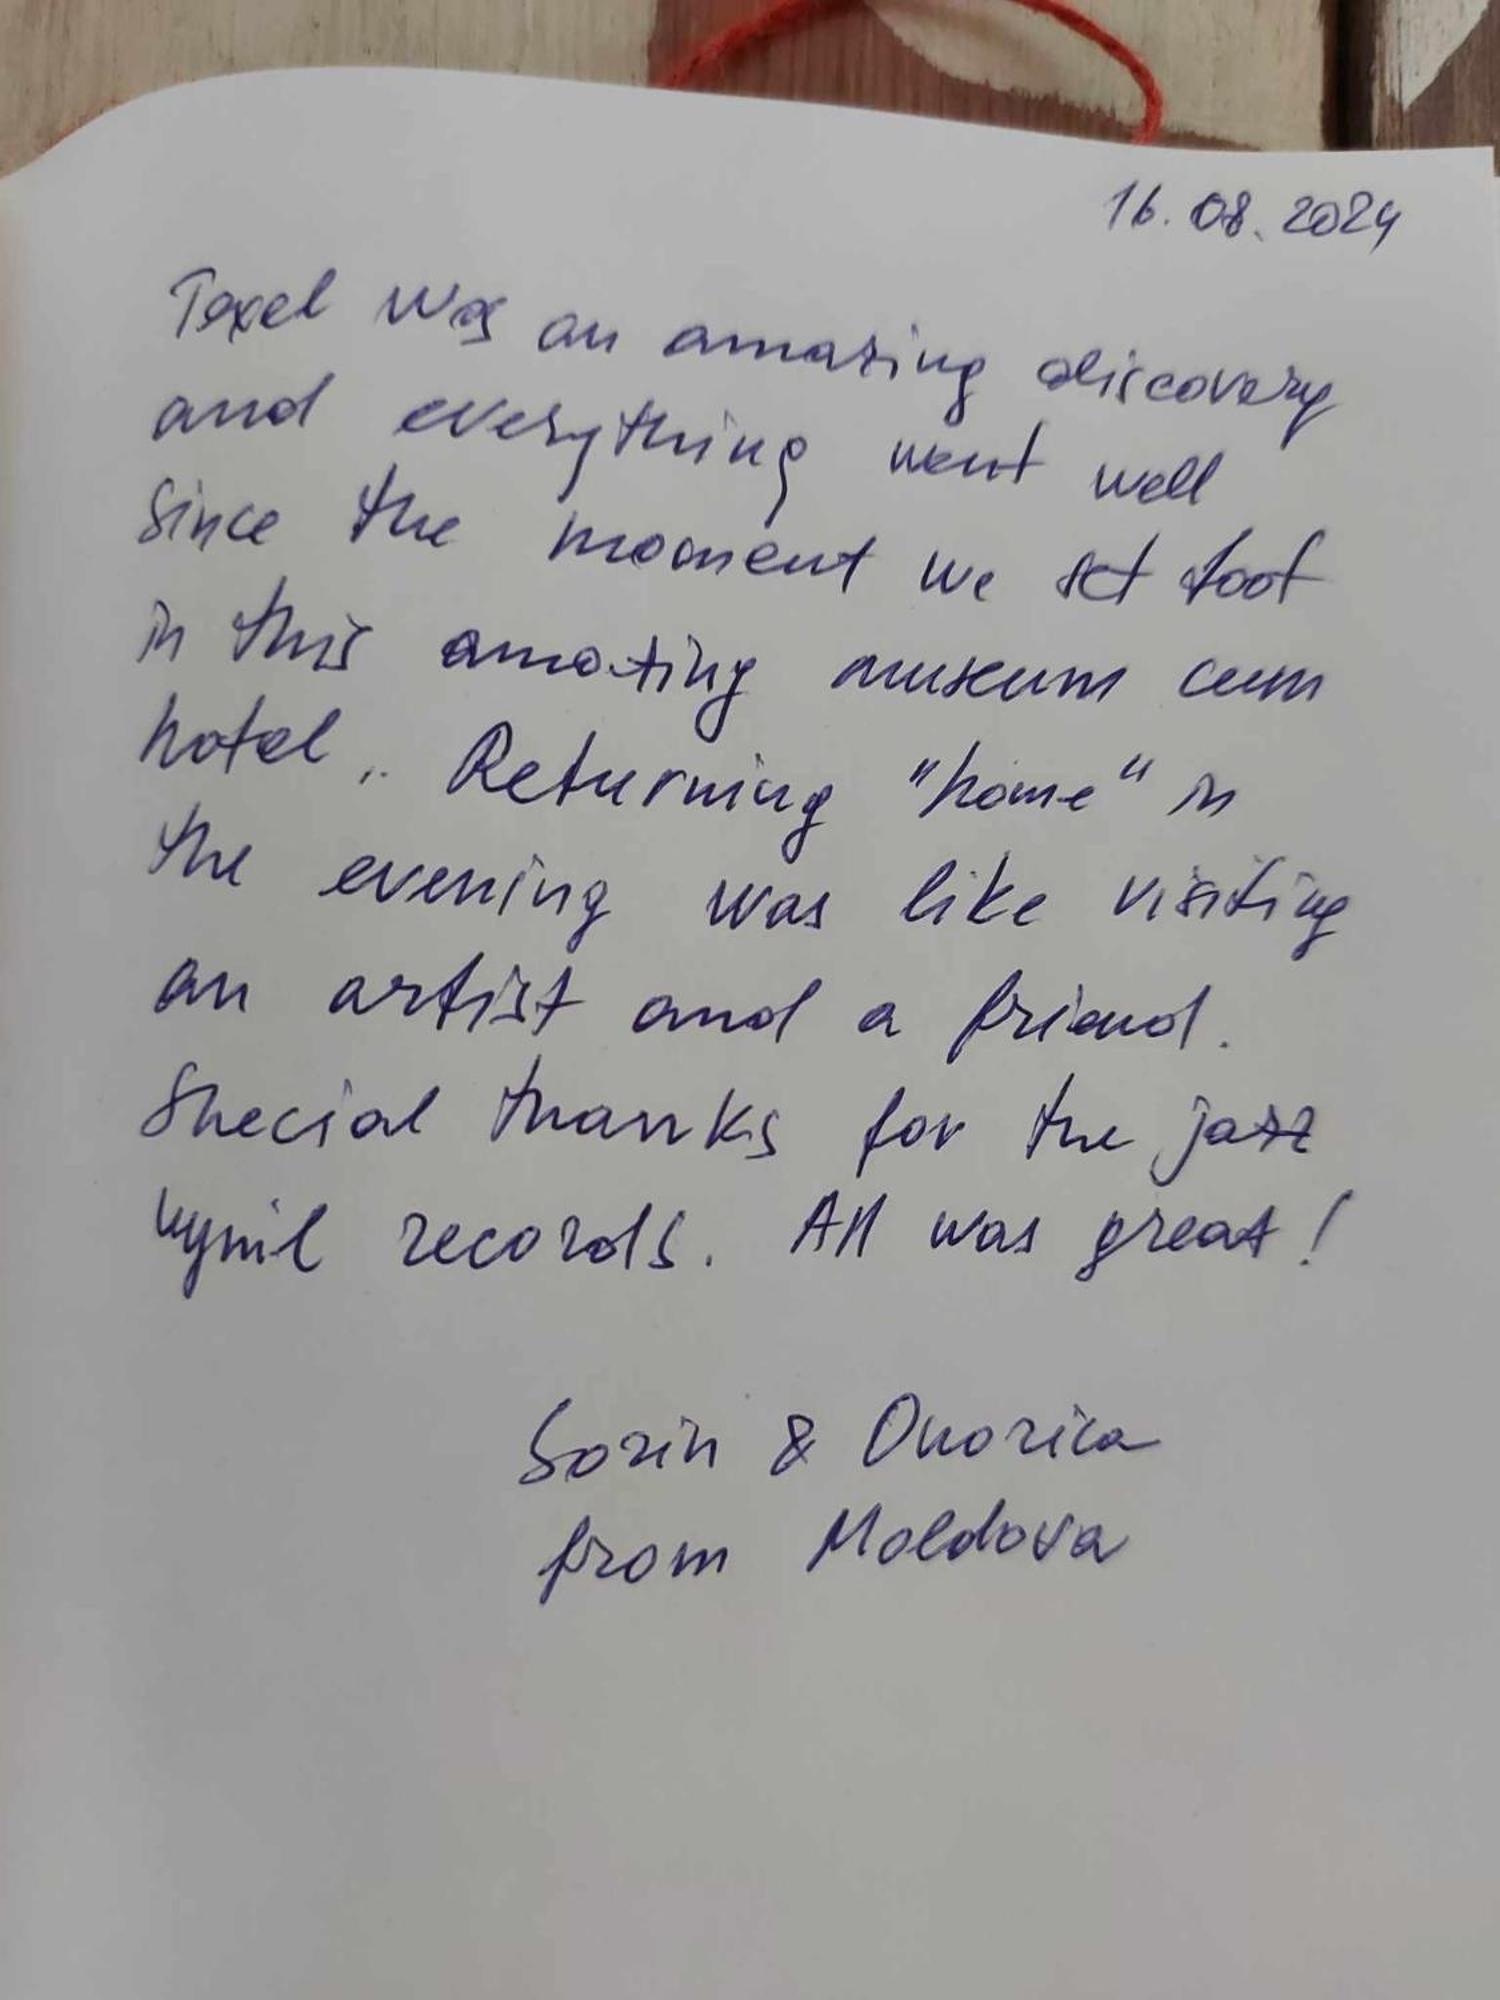 16.08.2024
Texel was an amazing discovery
and everything went well
since the moment we set foot
in this amazing museum cum
hotel.. Returning "home" in
the evening was like visiting
an artist and a friend.
Special thanks for the jazz
vynil records. All was great!
Sorin & Onorica
from Moldova